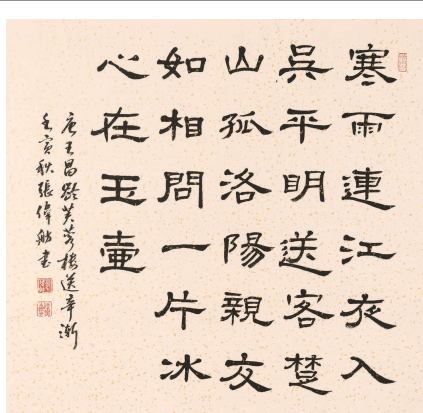 寒雨連江夜入
吳平明送客楚
山孤洛陽親友
如相問一片冰
心在玉壺
唐王昌齡芙蓉樓送辛漸
壬寅秋張偉舫書